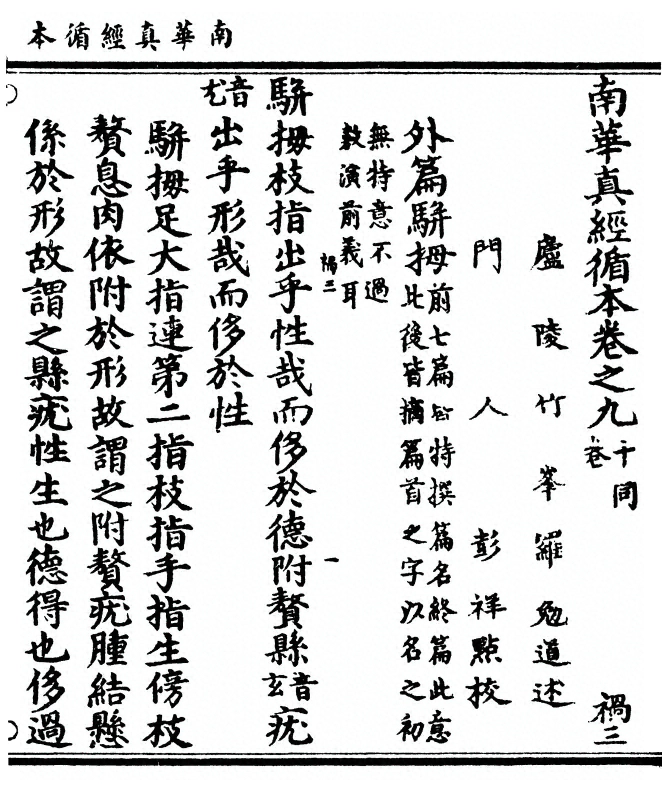 南華真經循本
南華真經循本卷之九十同卷 禍三
盧陵竹峯羅勉道述
門人彭祥點校
外篇駢拇前七篇皆特撰篇名終篇此意
此後皆摘篇首之字以名之初
無特意不過
敷演前義耳
禍三 一
駢拇枝指出乎性哉而侈於德附贅縣音玄疣
音尤出乎形哉而侈於性
駢拇足大指連第二指枝指手指生傍枝
贅息肉依附於形故謂之附贅疣腫結懸
係於形故謂之縣疣性生也德得也侈過